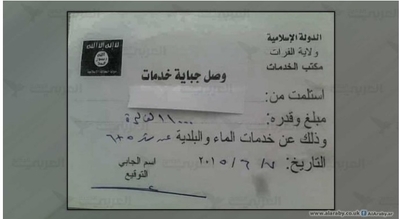 الدولة الإسلامية
ولاية الفرات
مكتب الخدمات
لا إله إلا الله
وصل جباية خدمات
استلمت من:
مبلغ وقدره: ١١٠٠٠
وذلك عن خدمات الماء والبلدية عن شهر ٥+٦
التاريخ: ٧ / ٦ / ٢٠١٥
اسم الجابي
التوقيع
www.alaraby.co.uk